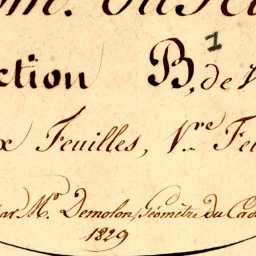 ction B, de
1
x Feuilles, 1.re Fe
ar M.r Demolon, Géomètre du Cad
1829